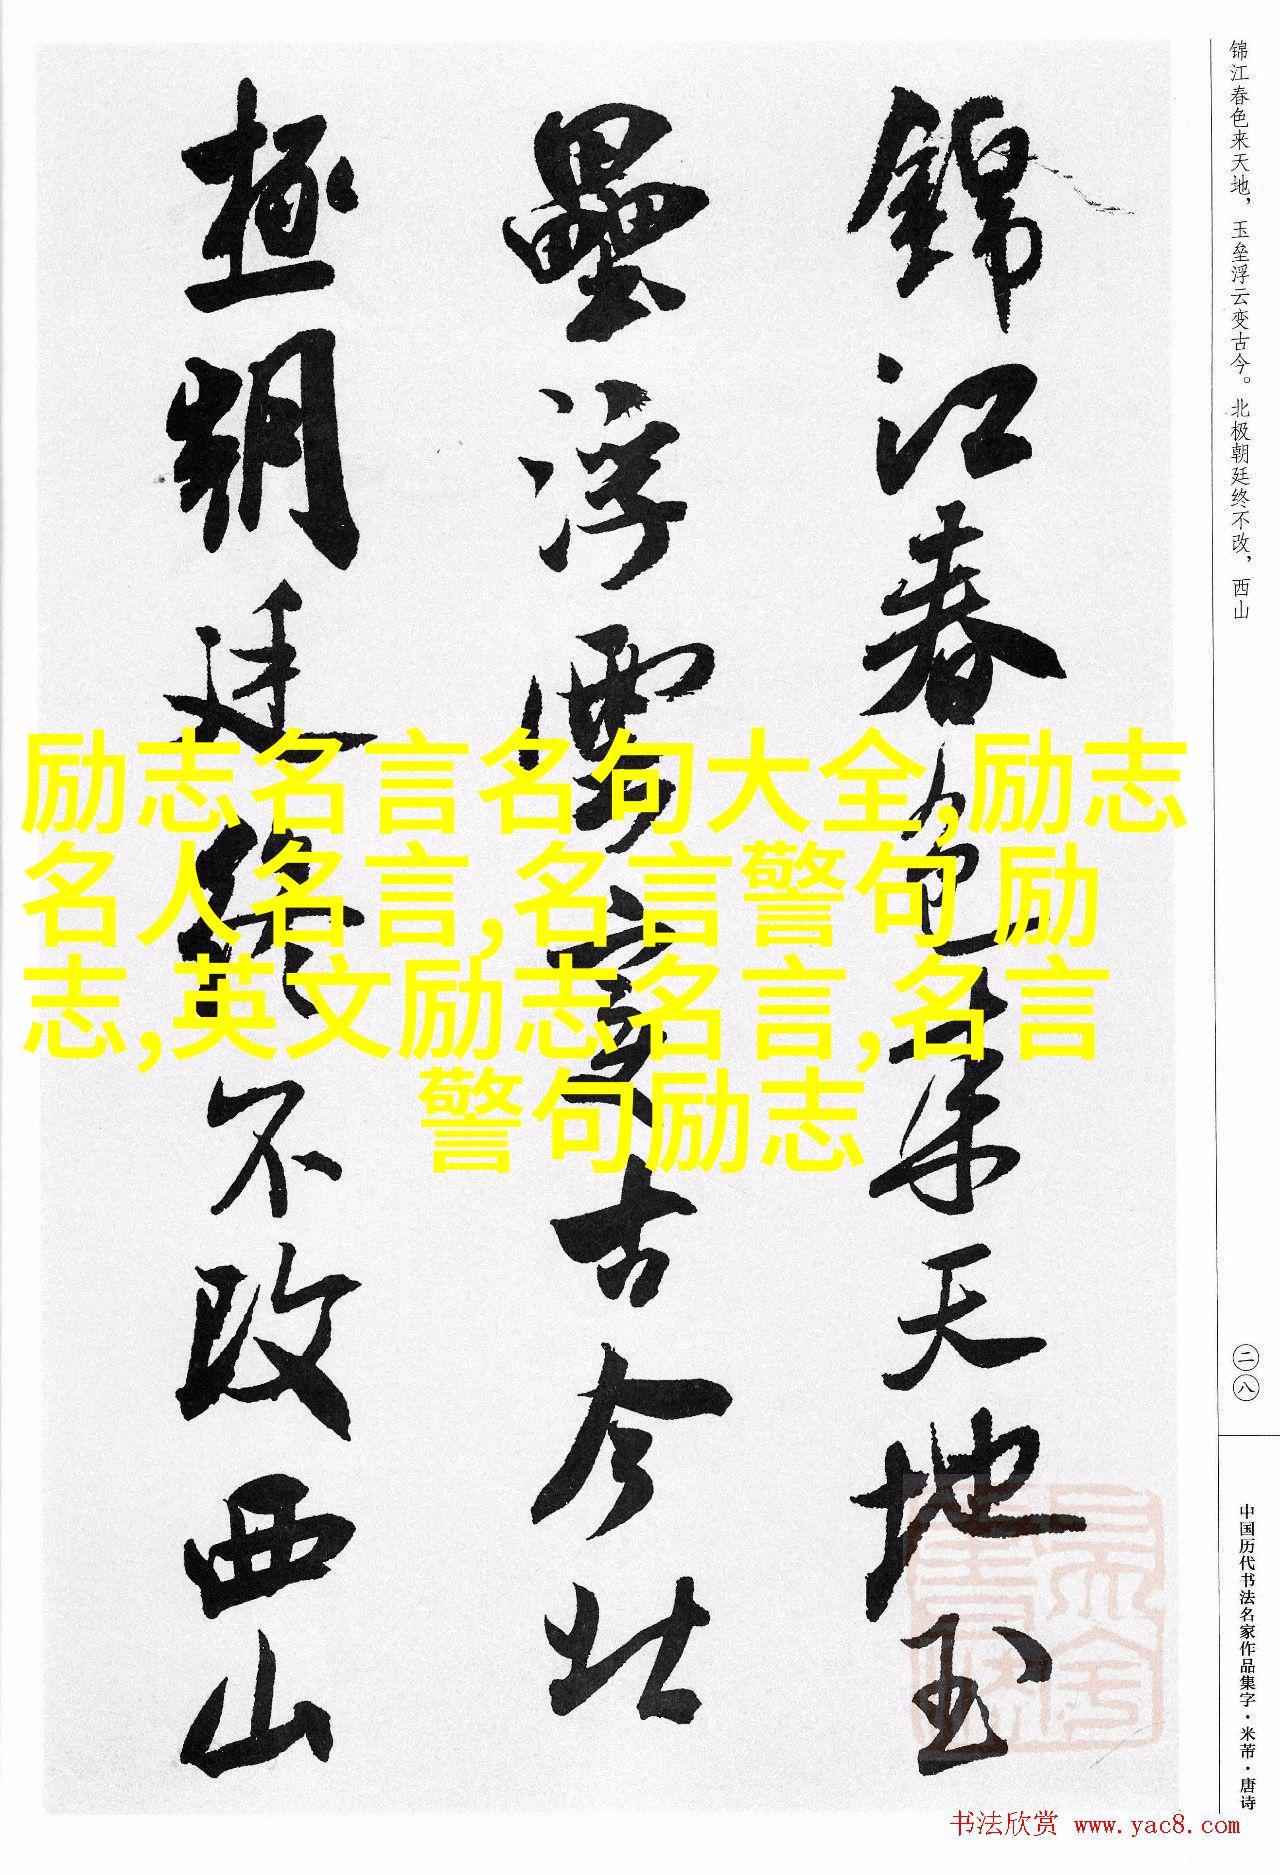 錦江春色来天地玉
壘浮雲变古今北
極朝廷終不改西山
锦江春色来天地，玉垒浮云变古今。北极朝廷终不改，西山
二八
中国历代书法名家作品集字·米芾·唐诗
励志名言名句大全,励志
名人名言,名言警句 励
志,英文励志名言,名言
警句励志
书法欣赏 www.yac8.com